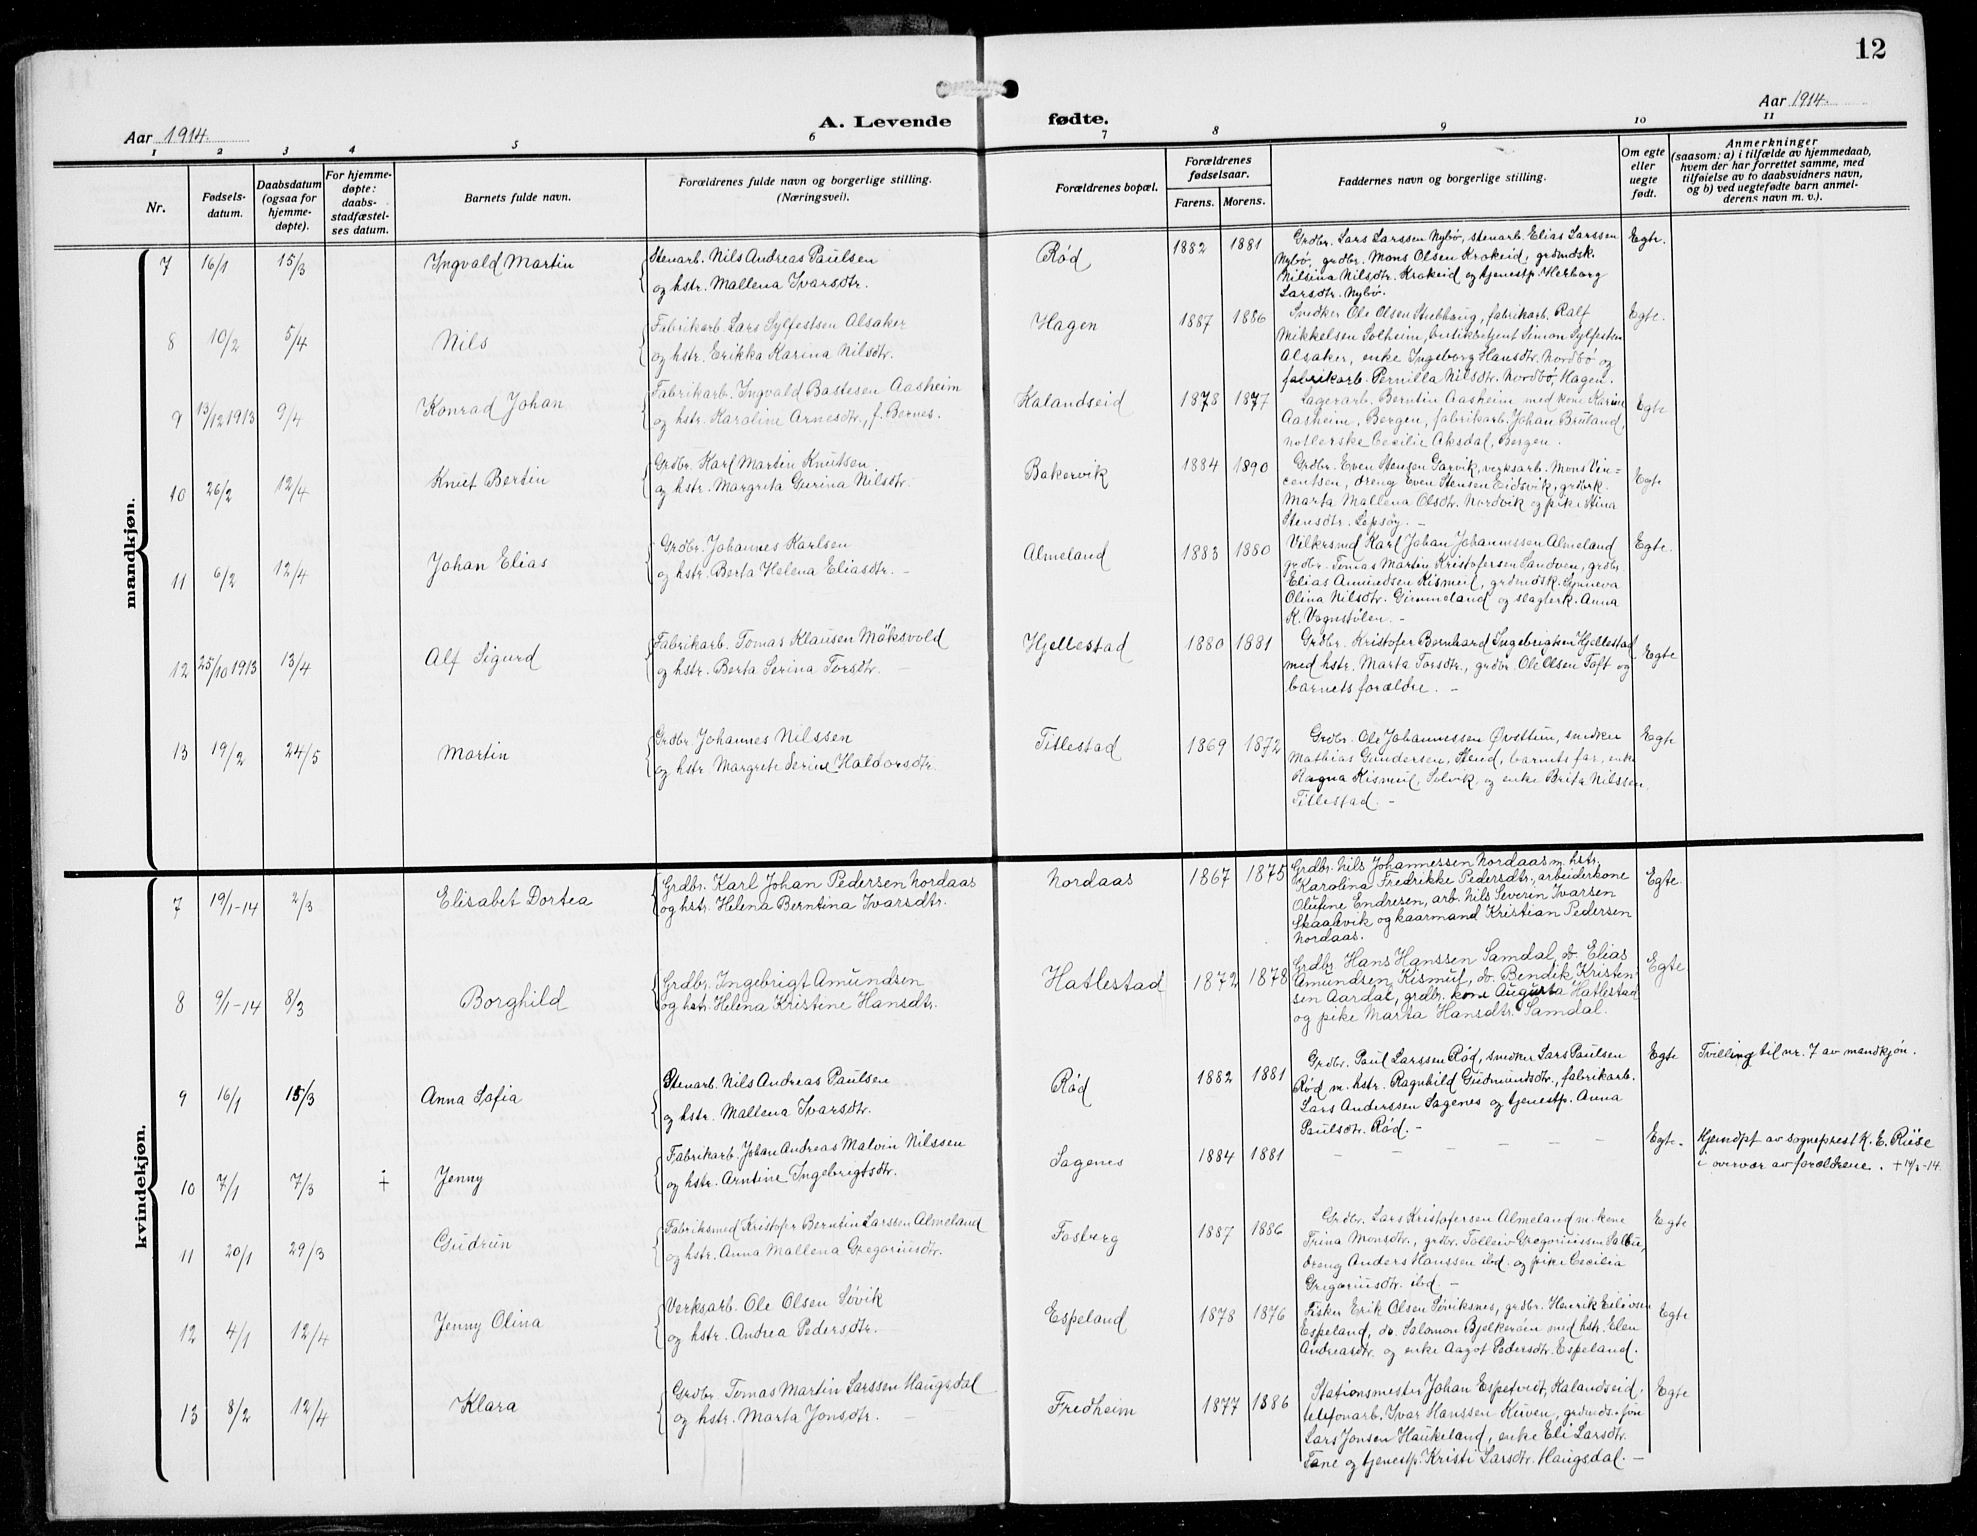 12
Aar 1914.
A. Levende fødte.
Aar 1914.
1 2 3 4 5 6 7 8 9 10 11
Nr.
Fødsels-
datum.
Daabsdatum
(ogsaa for
hjemme-
døpte).
For hjemme-
døpte:
daabs-
stadfæstel-
ses datum.
Barnets fulde navn.
Forældrenes fulde navn og borgerlige stilling.
(Næringsvei).
Forældrenes bopæl.
Forældrenes
fødselsaar.
Farens. Morens.
Faddernes navn og borgerlige stilling.
Om egte
eller
uegte
født.
Anmerkninger
(saasom: a) i tilfælde av hjemmedaab,
hvem der har forrettet samme, med
tilføielse av to daabsvidners navn,
og b) ved uegtefødte barn anmel-
derens navn m. v.).
mandkjøn.
7 16/1 15/3 Ingvald Martin
Stenarb. Nils Andreas Paulsen
og hstr. Mallena Ivarsdtr.
Rød 1882 1881
Grdbr. Lars Larssen Nybø, stenarb. Elias Larssen
Nybø, grdbr. Mons Olsen Krokeid, grdmdsk.
Nilsina Nilsdtr. Krokeid og tjenestp. Herborg
Larsdtr. Nybø.
Egte.
8 10/2 5/4 Nils
Fabrikarb. Lars Sylfestsen Alsaker
og hstr. Erikka Karina Nilsdtr.
Hagen 1887 1886
Snedker Ole Olsen Stuhhaug, fabrikarb. Ralf
Mikkelsen Solheim, butikbetjent Simon Sylfestsen
Alsaker, enke Ingeborg Hansdtr. Nordbø og
fabrikarb. Pernilla Nilsdtr. Nordbø, Hagen.
Egte.
9 13/12 1913 9/4 Konrad Johan
Fabrikarb. Ingvald Bastesen Aasheim
og hstr. Karoline Arnesdtr., f. Bernes.
Kalandseid 1878 1877
Lagerarb. Berntin Aasheim med kone Karine
Aasheim, Bergen, fabrikarb. Johan Bruland,
notlerske Cecilie Aksdal, Bergen.
Egte
10 26/2 12/4 Knut Bertin
Grdbr. Karl Martin Knutsen
og hstr. Margreta Gurina Nilsdtr.
Bakervik 1884 1890
Grdbr. Even Stensen Garvik, verksarb. Mons Vin=
centsen, dreng Even Stensen Eidsvik, grdbrk.
Marta Mallena Olsdtr. Nordvik og pike Stina
Stensdtr. Lepsøy. –
Egte
11 6/2 12/4 Johan Elias
Grdbr. Johannes Karlsen
og hstr. Berta Helena Eliasdtr. –
Almeland 1883 1880
Vilkersmed Karl Johan Johannessen Almeland
grdbr. Tomas Martin Kristofersen Sandven, grdbr.
Elias Amundsen Kismul, grdmdsk. Synneva
Olina Nilsdtr. Gimmeland og slagterk. Anna
K. Vognstølen. –
Egte.
12 25/10 1913 13/4 Alf Sigurd
Fabrikarb. Tomas Klausen Møksvold
og hstr. Berta Serina Torsdtr. –
Hjellestad 1880 1881
Grdbr. Kristofer Bernhard Ingebrigtsen Hjellestad
med hstr. Marta Torsdtr., grdbr. Ole Olsen Toft og
barnets forældre. –
Egte
13 19/2 24/5 Martin
Grdbr. Johannes Nilssen
og hstr. Margrete Serine Haldorsdtr.
Titlestad 1869 1872
Grdbr. Ole Johannessen Øvsttun, snedker
Mathias Gundersen, Stend, barnets far, enke
Ragna Kismul, Solvik, og enke Brita Nilssen,
Titlestad. –
Egte
kvindekjøn.
7 19/1-14 2/3 Elisabet Dortea
Grdbr. Karl Johan Pedersen Nordaas
og hstr. Helena Berntina Ivarsdtr.
Nordaas 1867 1875
Grdbr. Nils Johannessen Nordaas m. hstr.
Karolina Fredrikke Pedersdtr., arbeiderkone
Olufine Endresen, arb. Nils Severin Ivarsen
Skaalvik og kaarmand Kristian Pedersen
Nordaas.
Egte.
8 9/1-14 8/3 Borghild
Grdbr. Ingebrigt Amundsen
og hstr. Helena Kristine Hansdtr.
Hatlestad 1872 1878
Grdbr. Hans Hanssen Samdal, do. Elias
Amundsen Kismul, do. Bendik Kristen-
sen Aardal, grdbr. kone Augusta Hatlestad
og pike Marta Hansdtr. Samdal.
Egte
9 16/1 15/3 Anna Sofia
Stenarb. Nils Andreas Paulsen
og hstr. Mallena Ivarsdtr.
Rød 1882 1881
Grdbr. Paul Larssen Rød, snedker Lars Paulsen
Rød m. hstr. Ragnhild Gudmundsdtr., fabrikarb.
Lars Anderssen Sagenes og tjenestp. Anna
Paulsdtr. Rød. –
Egte
Tvilling til nr. 7 av mandkjøn.
10 7/1 7/3 ÷ Jenny
Fabrikarb. Johan Andreas Malvin Nilssen
og hstr. Arntine Ingebrigtsdtr.
Sagenes 1884 1881
– – – – – –
Egte.
Hjemdpt av sogneprest K. E. Riise
i overvær av forældrene. + 14/3-14.
11 20/1 29/3 Gudrun
Fabriksmed Kristofer Berntin Larssen Almeland
og hstr. Anna Mallena Gregoriusdtr.
Fosberg 1887 1886
Grdbr. Lars Kristofersen Almeland m. kone
Trina Monsdtr., grdbr. Tolleiv Gregoriussen Salbu,
dreng Anders Hanssen ibd. og pike Cecilia
Gregoriusdtr. ibd. –
Egte
12 4/1 12/4 Jenny Olina
Verksarb. Ole Olsen Søvik
og hstr. Andrea Pedersdtr.
Espeland 1878 1876
Fisker Erik Olsen Søviksnes, grdbr. Henrik Eilevsen
Espeland, do. Salomon Bjelkerøen med hstr. Elen
Andreasdtr. og enke Aagot Pedersdtr. Espeland.
Egte
13 8/2 12/4 Klara
Grdbr. Tomas Martin Larssen Haugsdal
og hstr. Marta Jonsdtr. –
Fredheim 1877 1886
Stationsmester Johan Espetvedt, Kalandseid,
telefonarb. Ivar Hanssen Kuven, grdmds. søn
Lars Jonsen Haukeland, enke Eli Larsdtr.
Fane og tjenestp. Kristi Larsdtr. Haugsdal. –
Egte